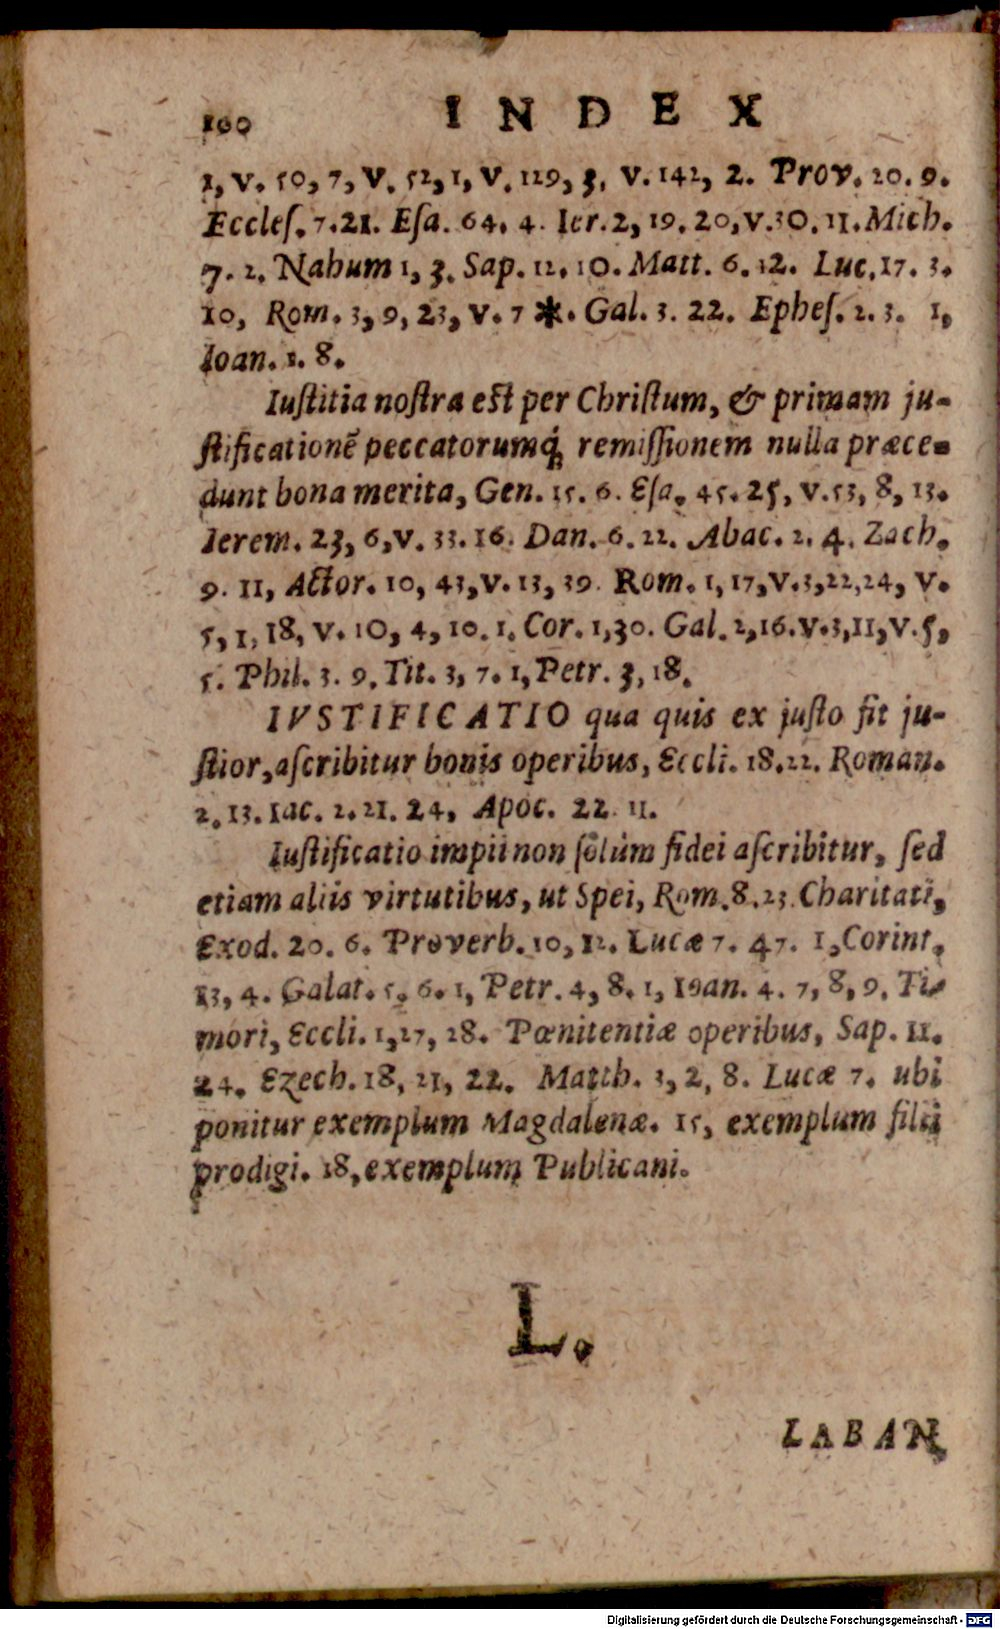 100 INDEX
1, v. 50, 7, V. 52, 1, V. 129, 3, v. 142, 2. Prov. 20. 9.
Eccleſ. 7.21. Eſa. 64. 4. Ier. 2, 19. 20, v.30. 11. Mich.
7. 2. Nahum 1, 3. Sap. 12. 10. Matt. 6. 12. Luc. 17. 3.
10, Rom. 3, 9, 23, v. 7 *. Gal. 3. 22. Epheſ. 2. 3. 1,
Ioan. 1. 8.
Iuſtitia noſtra eſt per Chriſtum, & primam ju-
ſtificationē peccatorumq́; remiſſionem nulla præce-
dunt bona merita, Gen. 15. 6. Eſa. 45. 25, v. 53, 8, 13.
Ierem. 23, 6, v. 33. 16. Dan. 6. 22. Abac. 2. 4. Zach.
9. 11, Actor. 10, 43, v. 13, 39. Rom. 1, 17, v. 3, 22, 24, v.
5, 1, 18, v. 10, 4, 10. 1. Cor. 1, 30. Gal. 2, 16. v. 3, 11, v. 5,
5. Phil. 3. 9. Tit. 3, 7. 1, Petr. 3, 18.
IVSTIFICATIO qua quis ex juſto fit ju-
ſtior, aſcribitur bonis operibus, Eccli. 18. 22. Roman.
2. 13. Iac. 2. 21. 24, Apoc. 22. 11.
Iuſtificatio impii non ſolùm fidei aſcribitur, ſed
etiam aliis virtutibus, ut Spei, Rom. 8. 23. Charitati,
Exod. 20. 6. Proverb. 10, 12. Lucæ 7. 47. 1, Corint.
13, 4. Galat. 5. 6. 1, Petr. 4, 8. 1, Ioan. 4. 7, 8, 9. Ti-
mori, Eccli. 1, 27, 28. Pœnitentiæ operibus, Sap. 11.
24. Ezech. 18, 21, 22. Matth. 3, 2, 8. Lucæ 7. ubi
ponitur exemplum Magdalenæ. 15, exemplum filii
prodigi. 18, exemplum Publicani.
L.
LABAN
Digitalisierung gefördert durch die Deutsche Forschungsgemeinschaft - DFG